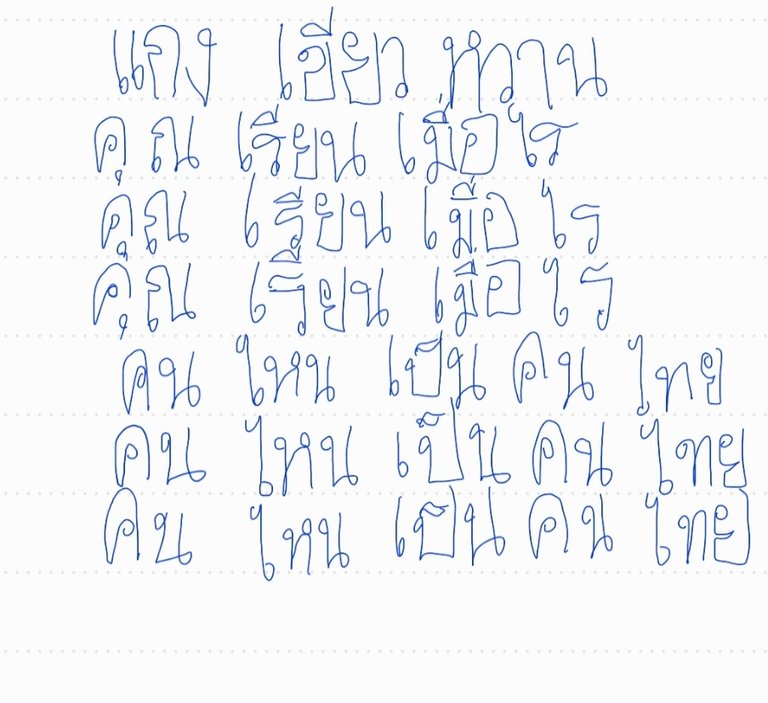 แกง เขียว หวาน
คุณ เรียน เมื่อ ไร
คุณ เรียน เมื่อ ไร
คุณ เรียน เมื่อ ไร
คน ไหน เป็น คน ไทย
คน ไหน เป็น คน ไทย
คน ไหน เป็น คน ไทย